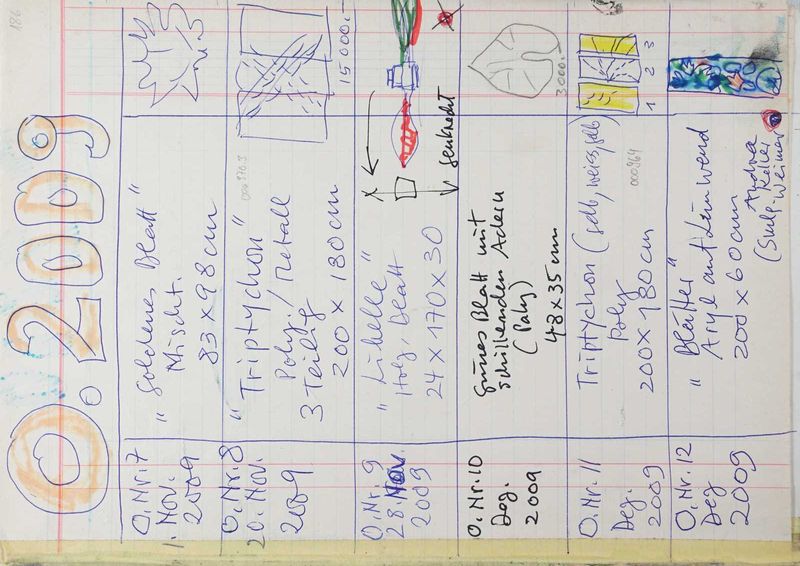 186
O. 2009
O.Nr.7
1. Nov.
2009
"Goldenes Blatt"
Mischt.
83 x 98 cm
O.Nr.8
20. Nov.
2009
"Triptychon"
Poly/Metall
3 Teilig
200 x 180 cm
15000.-
O.Nr.9
28. Nov.
2009
"Libelle"
Holz, Blatt
24 x 170 x 30
senkrecht
O.Nr.10
Dez.
2009
grünes Blatt mit
schillernden Adern
(Poly)
48 x 35 cm
3000.-
O.Nr.11
Dez.
2009
Triptychon (gelb, weiss, gelb)
Poly
200 x 180 cm
000964
1 2 3
O.Nr.12
Dez
2009
"Blätter"
Acryl auf Leinwand
200 x 60 cm
Andrea
Keller
Weimar